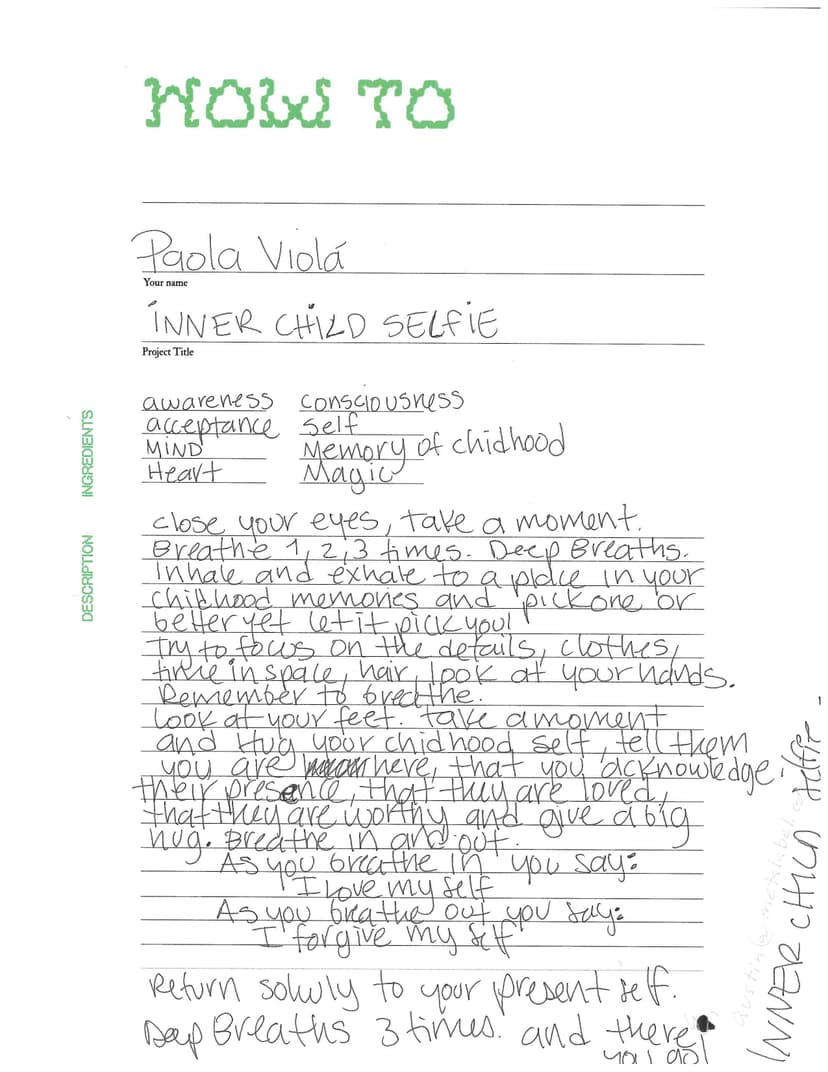 HOW TO
Paola Violá
Your name
INNER CHILD SELFIE
Project Title
INGREDIENTS
awareness consciousness
acceptance self
MIND Memory of chidhood
Heart Magic
DESCRIPTION
close your eyes, take a moment.
Breathe 1, 2, 3 times. Deep Breaths.
Inhale and exhale to a place in your
childhood memories and pick one or
better yet let it pick you!
try to focus on the details, clothes,
time in space, hair, look at your hands.
Remember to breathe.
look at your feet. take a moment
and Hug your chidhood self, tell them
you are here, that you acknowledge
their presence, that they are loved,
that they are worthy and give a big
hug. Breathe in and out.
As you breathe in you say:
I love my self
As you breathe out you say:
I forgive my self
Return solwly to your present self.
Deep Breaths 3 times. and there
you go!
INNER CHILD selfie.